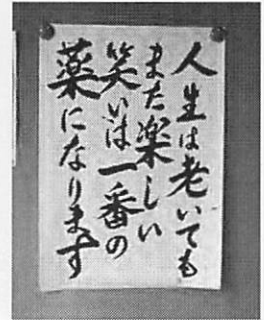 人生は老いても
また楽しい
笑いは一番の
薬になります